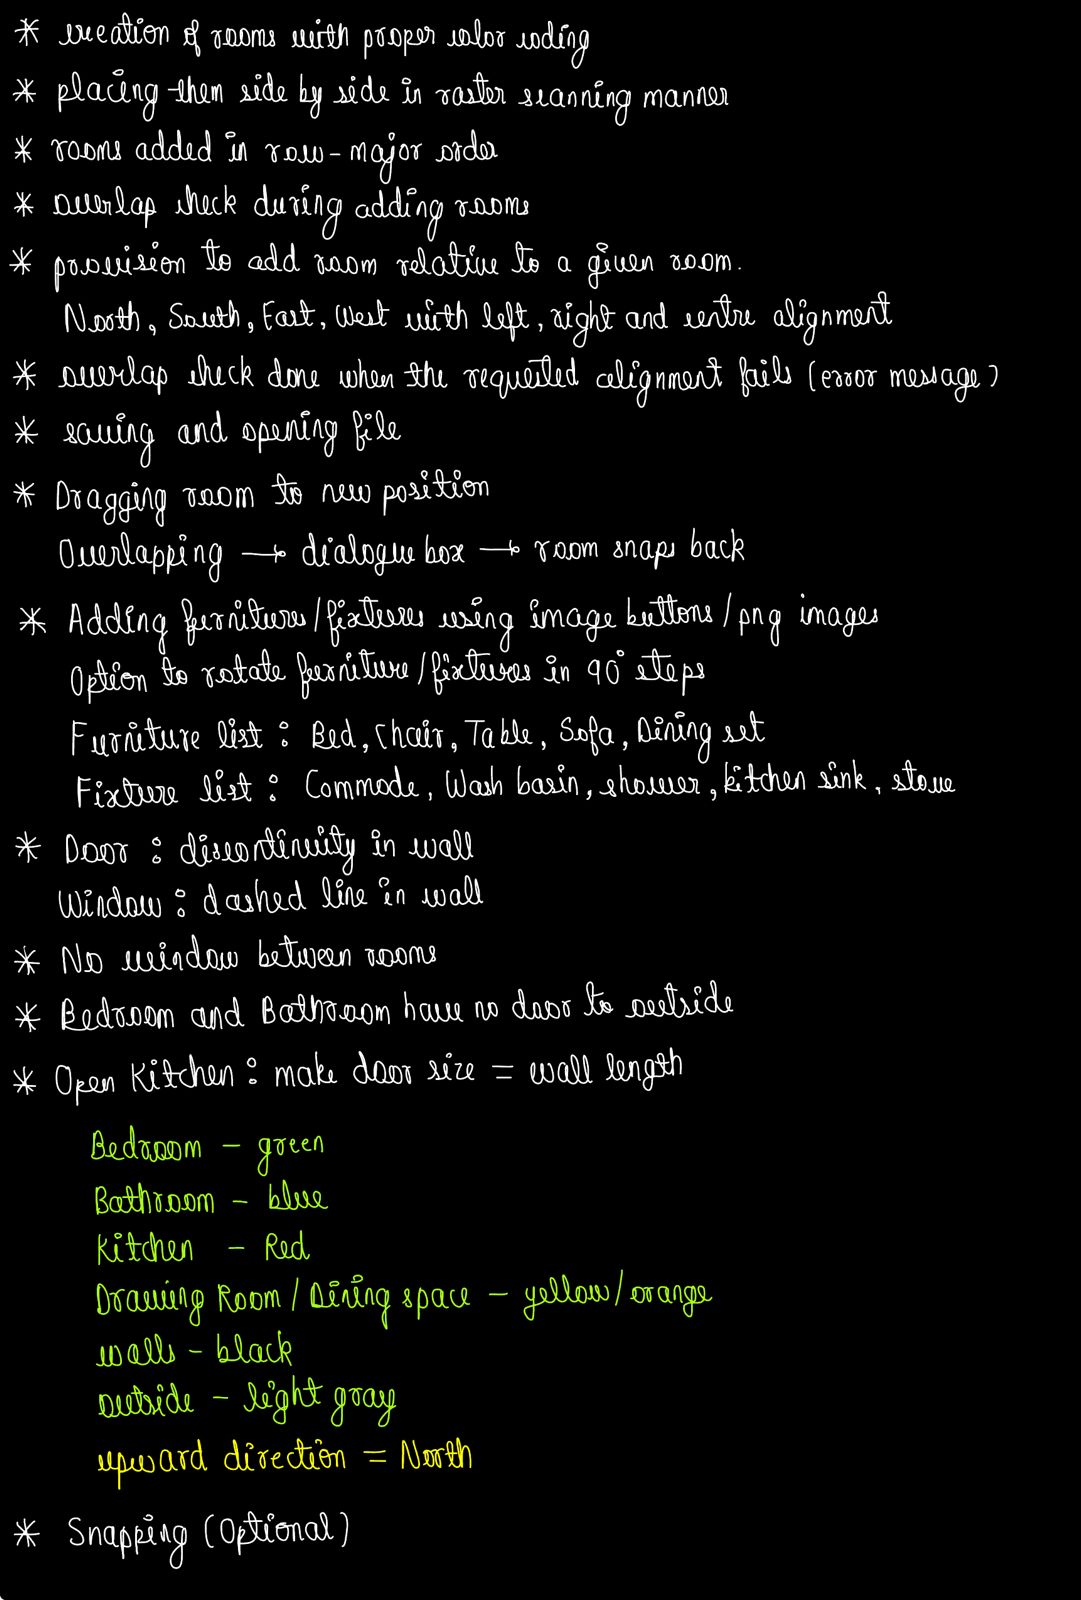 * creation of rooms with proper color coding
* placing them side by side in raster scanning manner
* rooms added in row-major order
* overlap check during adding rooms
* provision to add room relative to a given room.
North, South, East, West with left, right and centre alignment
* overlap check done when the requested alignment fails (error message)
* saving and opening file
* Dragging room to new position
Overlapping → dialogue box → room snaps back
* Adding furniture/fixtures using image buttons/png images
Option to rotate furniture/fixtures in 90° steps
Furniture list : Bed, Chair, Table, Sofa, Dining set
Fixture list : Commode, Wash basin, shower, kitchen sink, stove
* Door : discontinuity in wall
Window : dashed line in wall
* No window between rooms
* Bedroom and Bathroom have no door to outside
* Open Kitchen : make door size = wall length
Bedroom - green
Bathroom - blue
Kitchen - Red
Drawing Room / Dining space - yellow/orange
walls - black
outside - light gray
upward direction = North
* Snapping (Optional)